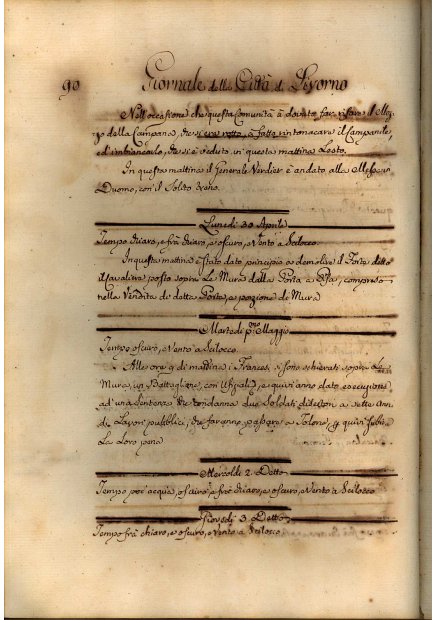 90 Giornale della Città di Livorno
Nell'occasione che questa Comunità à dovuto far rifare il Maz-
zo della Campana, che si era rotto, à fatto rintonacare il Campanile,
ed imbiancarlo, che si è veduto in questa mattina
In questa mattina il Generale Verdier è andato alla Messa in
Duomo, con il Solito
Lunedì 30 Aprile
Tempo chiaro, e frà chiaro, e oscuro, e Vento a Scilocco
In questa mattina è stato dato principio a demolire il Forte detto
il Cavaliere posto sopra le Mura della Porta a Pisa, compreso
nella Vendita di detta Porta, e porzione di Mura
Martedì p.mo Maggio
Tempo oscuro, e Vento a Scilocco.
Alle ore 9 di mattina i Francesi si sono schierati sopra le
Mura, un Battaglione, con Ufiziali, e quivi anno dato esecuzione
ad' una Sentenza che condanna due Soldati disertori a sette anni
di Lavori pubblici, che faranno passare a Tolone, p quivi subire
La Loro pena
Mercoldì 2. Detto
Tempo poc' acqua, oscuro, e frà chiaro, e oscuro, e Vento a Scilocco
Giovedì 3 Detto
Tempo frà chiaro, e oscuro, e Vento a Scilocco